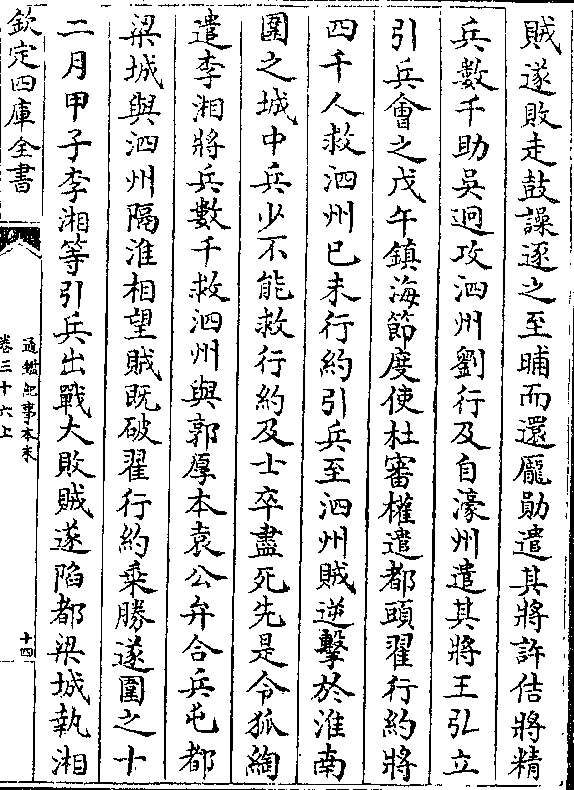 賊遂敗走鼓譟逐之至晡而還龎勛遣其將許佶將精
兵數千助吳迥攻泗州劉行及自濠州遣其將王弘立
引兵會之戊午鎮海節度使杜審權遣都頭翟行約將
四千人救泗州已未行約引兵至泗州賊逆擊於淮南
圍之城中兵少不能救行約及士卒盡死先是令狐綯
遣李湘將兵數千救泗州與郭厚本袁公弁合兵屯都
梁城與泗州隔淮相望賊既破翟行約乘勝遂圍之十
二月甲子李湘等引兵出戰大敗賊遂陷都梁城執湘
欽定四庫全書
通鑑紀事本末
卷三十六上
十四